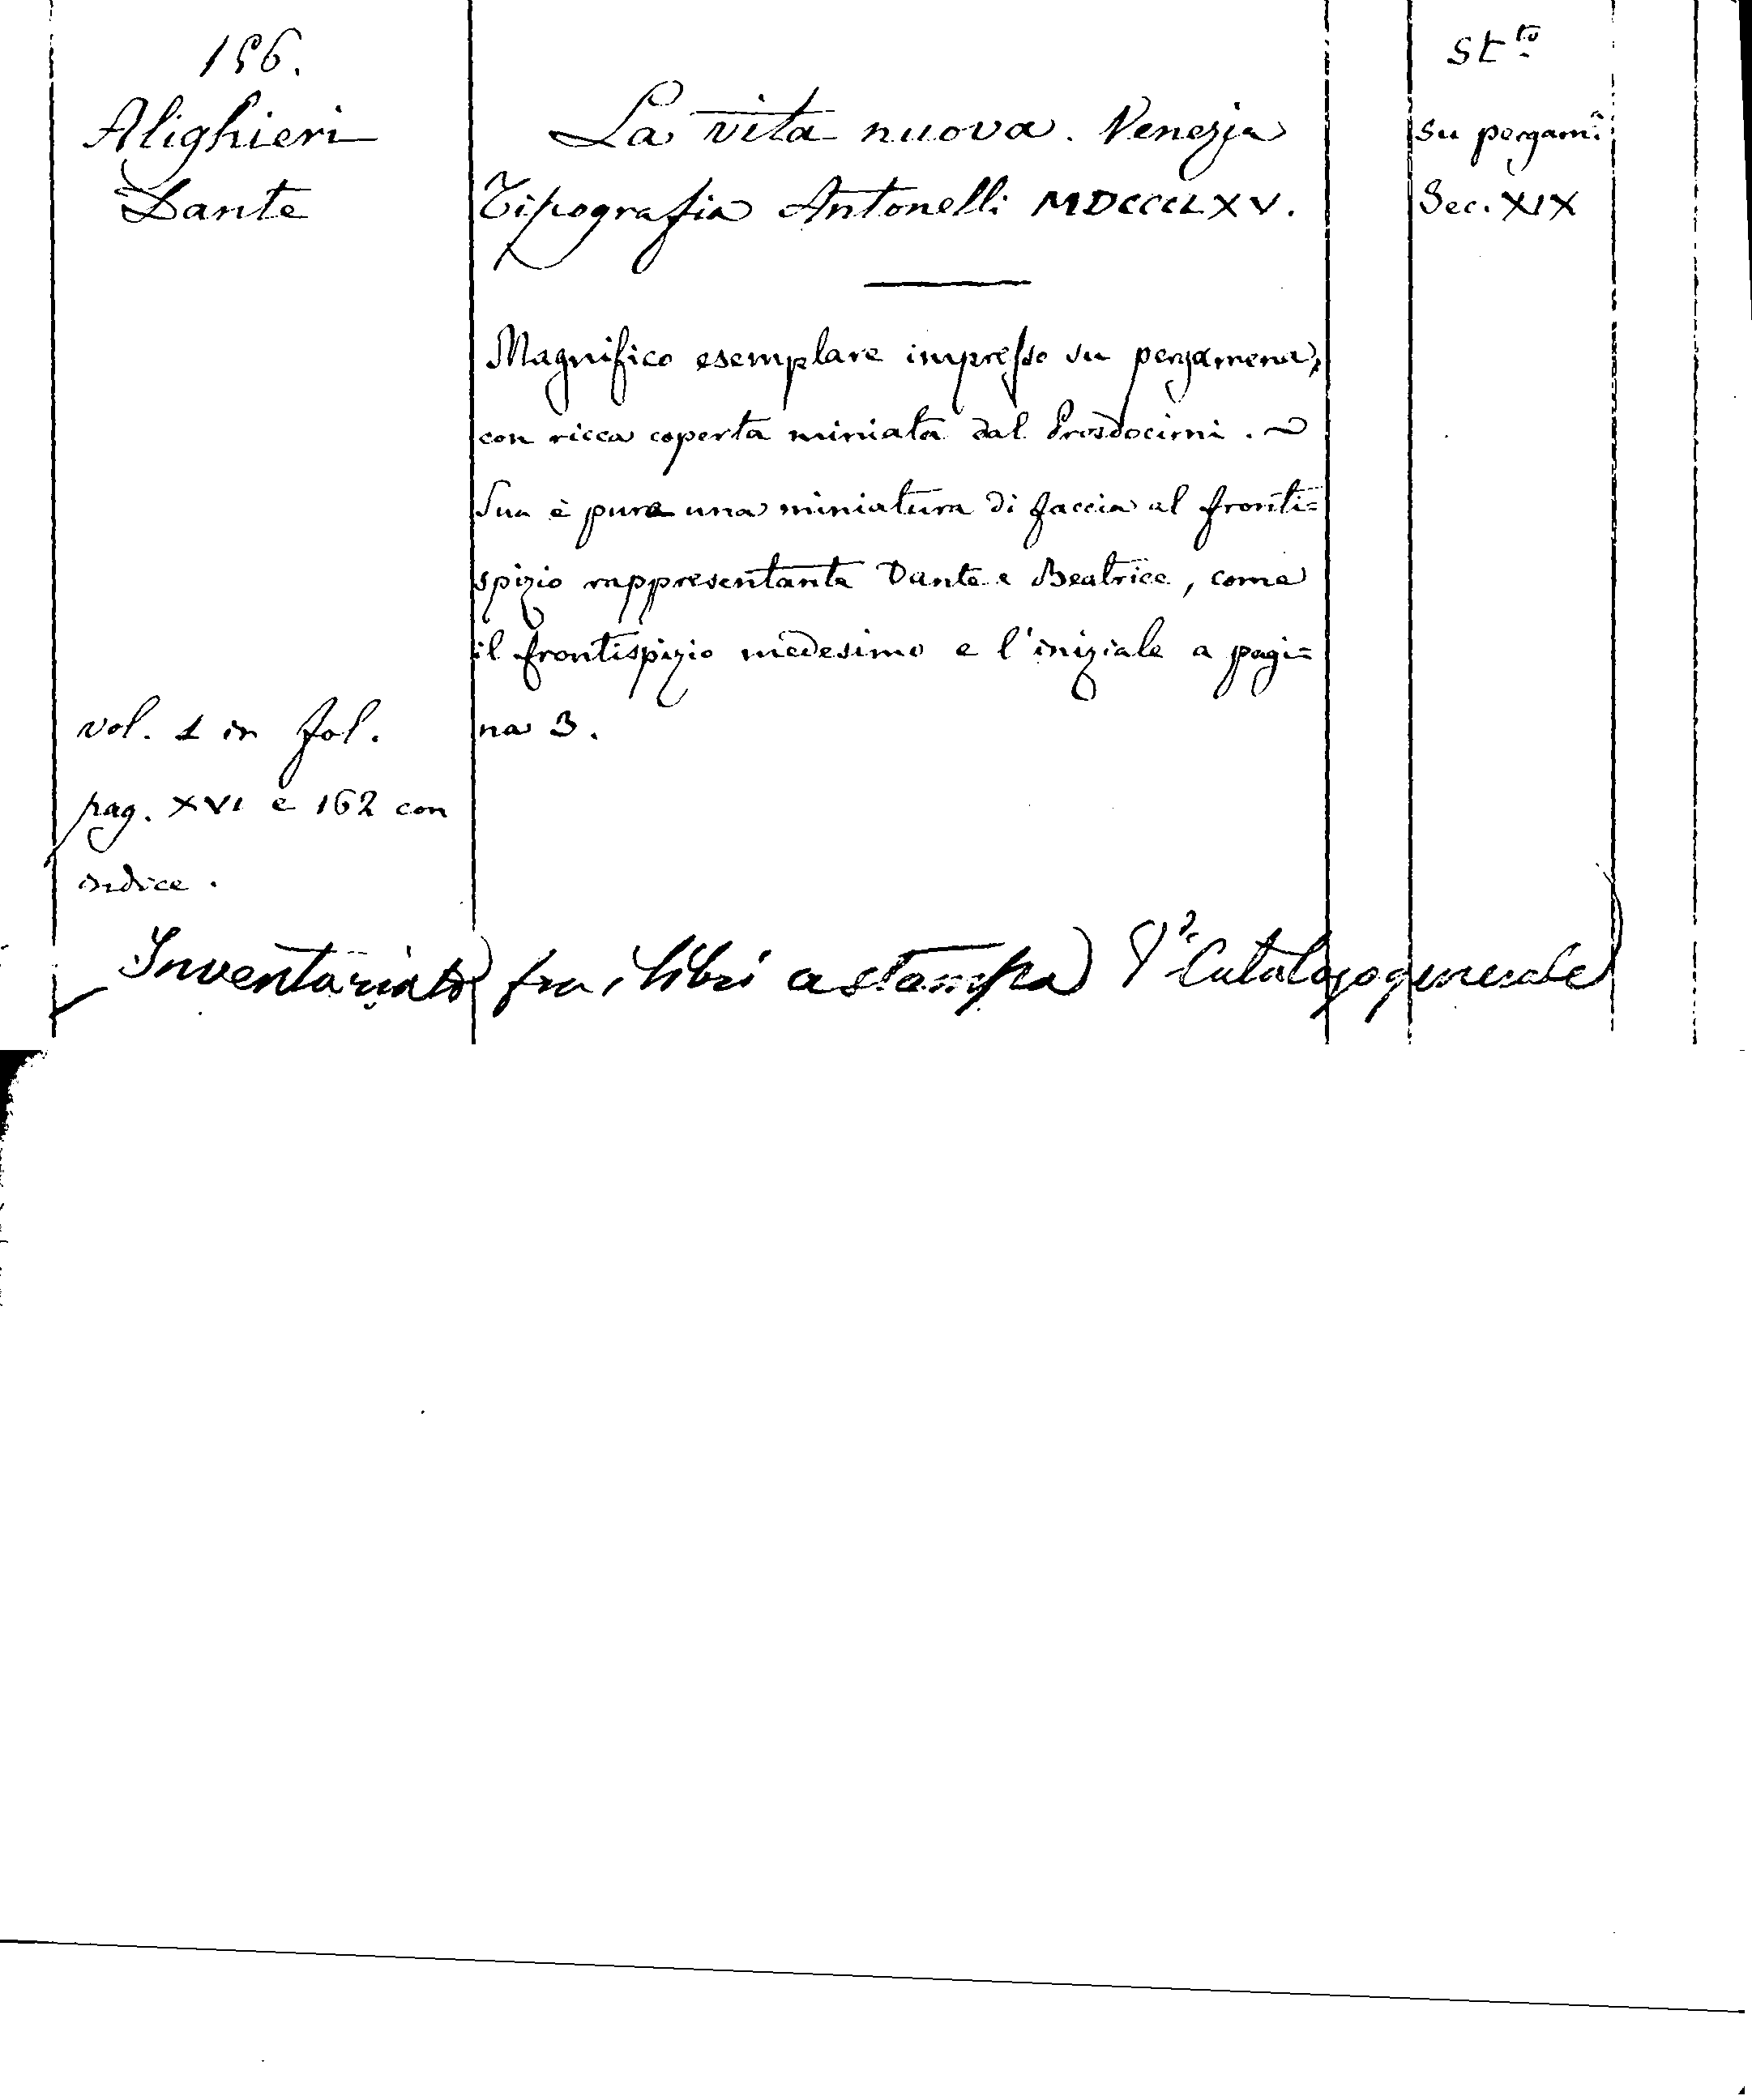 156.
Alighieri
Dante
La vita nuova. Venezia
Tipografia Antonelli MDCCCLXV.
Magnifico esemplare impresso su pergamena,
con ricca coperta miniata dal Prosdocimi. ~
Sua è pure una miniatura di faccia al fronti=
spizio rappresentante Dante e Beatrice, come
il frontispizio medesimo e l'iniziale a pagi=
na 3.
vol. 1 in fol.
pag. XVI e 162 con
indice.
St.to
su pergam.
Sec. XIX
Inventariato fra i libri a stampa Catalogo generale